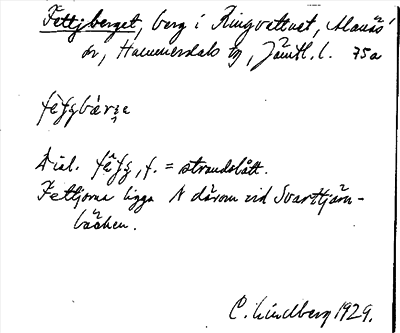 Fettjberget, berg i Ringvattnet, Alanäs
sn, Hammerdals tg, Jämtl. l. 75a
Dial. f. = strandslått.
Fettjorna ligga N därom vid Svarttjärn-
bäcken.
C. Lindberg 1929.